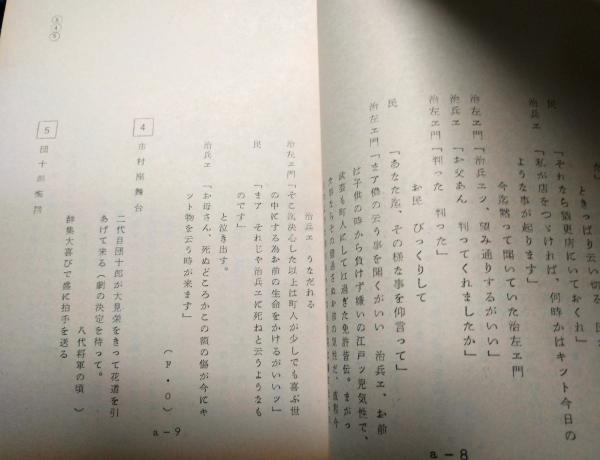 ときっぱり云い切る　民
民　「それなら猶更店にいておくれ」
治兵ヱ　「私が店をつゞければ、何時かはキット今日の
ような事が起ります」
今迄黙って聞いていた治左ヱ門
治左ヱ門「治兵ヱッ、望み通りするがいい」
治兵ヱ　「お父あん　判ってくれましたか」
治左ヱ門「判った　判った」
お民　びっくりして
民　「あなた迄、その様な事を仰言って」
治左ヱ門「まア僕の云う事を聞くがいい　治兵ヱ、お前
は子供の時から負けず嫌いの江戸ッ児気性で、
武芸も町人にしては過ぎた免許皆伝。まがっ
a-8
治兵ヱ　うなだれる
治左ヱ門「そこ迄決心した以上は町人が少しでも喜ぶ世
の中にする為お前の生命をかけるがいいッ」
民　「まア　それじゃ治兵ヱに死ねと云うようなも
のです」
と泣き出す。
治兵ヱ　「お母さん、死ぬどころかこの額の傷が今にキ
ット物を云う時が来ます」
（F・O）
4　市村座舞台
二代目団十郎が大見栄をきって花道を引
あげて来る（劇の決定を待って。
八代将軍の頃　）
群集大喜びで盛に拍手を送る
5　団十郎楽屋
a-9